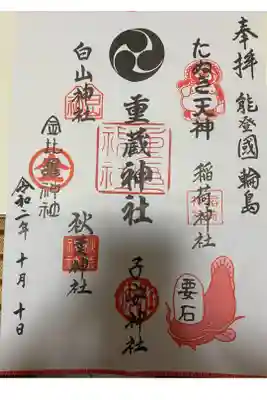 奉拝 能登國 輪島
たぬき天神
稲荷神社
要石
重蔵神社
子安神社
白山神社
秋葉神社
金比羅神社
令和二年十月十日